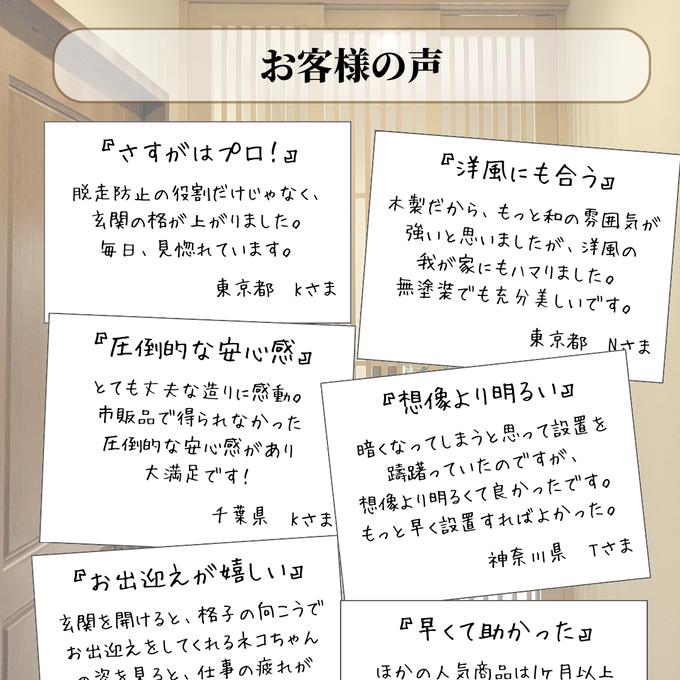 お客様の声
『さすがはプロ！』
脱走防止の役割だけじゃなく、
玄関の格が上がりました。
毎日、見惚れています。
東京都　Kさま
『洋風にも合う』
木製だから、もっと和の雰囲気が
強いと思いましたが、洋風の
我が家にもハマりました。
無塗装でも充分美しいです。
東京都　Nさま
『圧倒的な安心感』
とても丈夫な造りに感動。
市販品で得られなかった
圧倒的な安心感があり
大満足です！
千葉県　Kさま
『想像より明るい』
暗くなってしまうと思って設置を
躊躇っていたのですが、
想像より明るくて良かったです。
もっと早く設置すればよかった。
神奈川県　Tさま
『お出迎えが嬉しい』
玄関を開けると、格子の向こうで
お出迎えをしてくれるネコちゃん
の姿を見ると、仕事の疲れが
『早くて助かった』
ほかの人気商品は1ヶ月以上